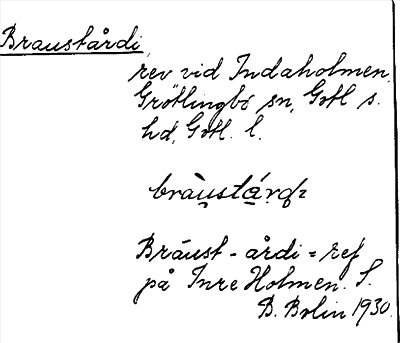 Braustårdi,
rev vid Indaholmen.
Grötlingbo sn, Gotl s.
hd, Gotl. l.
Bräust - årdi = ref
på Inre Holmen. S.
B. Bolin 1930.